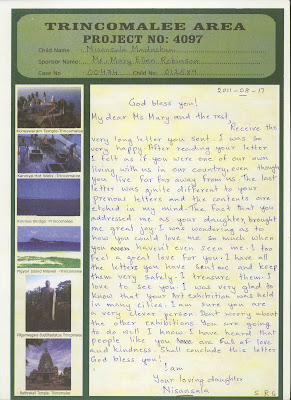 TRINCOMALEE AREA
PROJECT NO: 4097
Child Name : Nisansala Madushani
Sponsor Name : Ms. Mary Ellen Robinson
Case No : Child No :
2011-08-17
God bless you!
My dear Ms Mary and the rest,
Receive the
very long letter you sent. I was so
very happy. After reading your letter
I felt as if you were one of our own
living with us in our country even though
you live far far away from us. The last
letter was quite different to your
previous letters and the contents are
etched in my mind. The fact that you
addressed me as your daughter brought
me great joy. I was wondering as to
how you could love me so much when
you haven't even seen me. I too
feel a great love for you. I have all
the letters you have sent me and keep
them very safely. I treasure them. I
love to see you. I was very glad to
know that your Art exhibition was held
in many cities. I am sure you are
a very clever person. Dont worry about
the other exhibitions. You are going
to do well. I know. I have heard that
people like you are full of love
and kindness. Shall conclude this letter
God bless you!
I am
Your loving daughter
Nisansala
S R G
Koneswaram Temple - Trincomalee
Kanniya Hot Wells - Trincomalee
Kinniya Bridge - Trincomalee
Pigeon Island Nilaveli - Trincomalee
Temple - Trincomalee